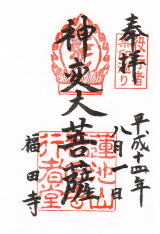 奉拝
平成十四年
八月一日
神変大菩薩
蓮池山
行者堂
福田寺